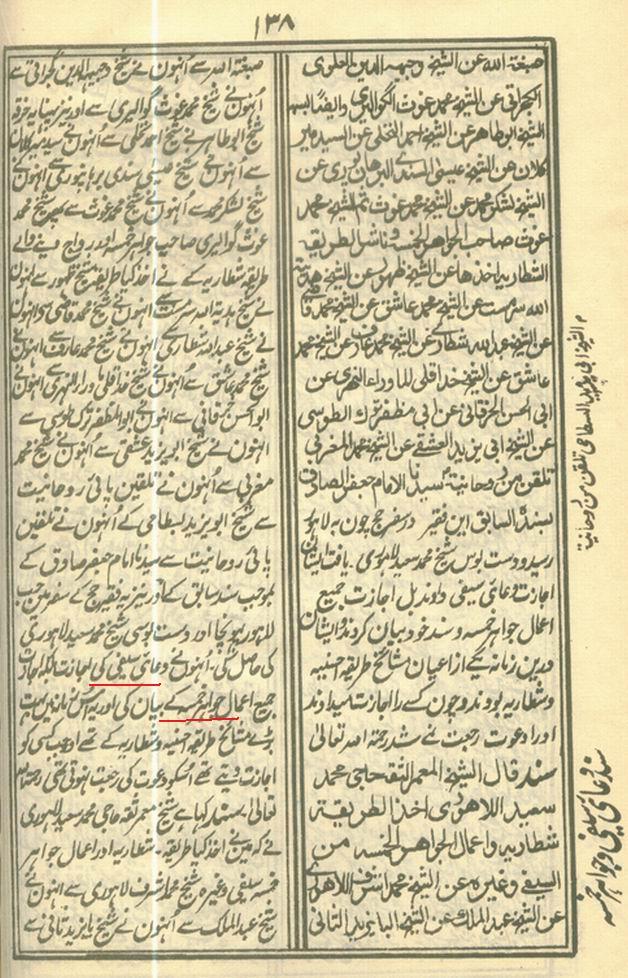 ۱۳۸
صبغة الله عن الشيخ وجيه الدين العلوى
الكجراتى عن الشيخ محمد غوث الكوالیری وايضا لبسه
الشيخ ابو طاهر عن الشيخ احمد النخلى عن السيد مير
كلان عن الشيخ عيسى السندى البرهان پوری عن
الشيخ لشكر محمد عن الشيخ محمد غوث ثم الشيخ محمد
غوث صاحب الجواهر الخمسه وناشر الطريقة
الشطاريه اخذها عن الشيخ ظهور عن الشيخ هدية
الله سرمست عن الشيخ محمد عاشق عن الشيخ محمد
عن الشيخ عبد الله شطارى عن الشيخ محمد عارف عن الشيخ محمد
عاشق عن الشيخ خدا قلى الماوراء النهرى عن
ابى الحسن الخرقانى عن ابى مظفر ترك الطوسى
عن الشيخ ابى يزيد العشقى عن الشيخ محمد المغربى
تلقن من روحانية سيدنا الامام جعفر الصادق
بسنده السابق این فقیر در سفر حج چون به لاہور
رسید و دست بوس شیخ محمد سعید لاہوری یافت ایشان
اجازت دعائی سیفی دادند بل اجازت جمیع
اعمال جواہر خمسہ و سند خود بیان کردند و ایشان
درین زمانہ یکے از اعیان مشائخ طریقہ احسنیہ
و شطاریہ بودند و چون کسے را اجازت میدادند
اورا دعوت رجعت نمے شد رحمة الله تعالى
سند قال الشيخ المعمر الثقة حاجى محمد
سعيد اللاهورى اخذ الطريقة
شطاريه واعمال الجواهر الخمسه من
السيفى وغيره عن الشيخ محمد اشرف اللاهورى
عن الشيخ عبد الملك عن الشيخ البايزيد الثانى
م الشيخ ابى يزيد البسطامى تلقن من روحانية
سند دعای سیفی و جواہر خمسہ
صبغة اللہ سے اُنہوں نے شیخ وجیہ الدین گجراتی سے
اُنہوں نے شیخ محمد غوث گوالیری سے اور نیز پہنایہ خرقہ
شیخ ابو طاہر نے شیخ احمد نخلی سے اُنہوں نے سید میر کلان
سے اُنہوں نے شیخ عیسی سندی برہانپوری سے اُنہوں نے
شیخ لشکر محمد سے اُنہوں نے شیخ محمد غوث سے پھر شیخ محمد
غوث گوالیری صاحب جواہر خمسہ اور رواج دینے والے
طریقہ شطاریہ کے نے اخذ کیا طریقہ شیخ ظہور سے اُنہوں
نے شیخ ہدیة اللہ سرمست سے اُنہوں نے شیخ محمد قاضی سے اُنہوں
نے شیخ عبد اللہ شطاری سے اُنہوں نے شیخ محمد عارف سے اُنہوں نے
شیخ محمد عاشق سے اُنہوں نے شیخ خدا قلی ماوراء النہری سے اُنہوں نے
ابو الحسن خرقانی سے اُنہوں نے ابو المظفر ترک طوسی سے
اُنہوں نے شیخ ابو یزید عشقی سے اُنہوں نے شیخ محمد
مغربی سے اُنہوں نے تلقین پائی روحانیت
سے شیخ ابو یزید بسطامی کے اُنہوں نے تلقین
پائی روحانیت سے سیدنا امام جعفر صادق کے
بموجب سند سابق کے اور نیز یہ فقیر حج کے سفر مین جب
لاہور پہونچا اور دست بوسی شیخ محمد سعید لاہوری
کی حاصل کی اُنہوں نے دعائے سیفی کی اجازت بلکہ اجازت
جمیع اعمال جواہر خمسہ کے بیان کی اور یہ اس زمانہ مین بہت
بڑے مشائخ طریقہ احسنیہ و شطاریہ کے تھے اور جب کسی کو
اجازت دیتے تھے اُسکو دعوت کی رجعت نہوتی تھی رحمة اللہ
تعالیٰ سند کہا ہے شیخ معمر ثقہ حاجی محمد سعید لاہوری
نے کہ مینے اخذ کیا طریقہ شطاریہ اور اعمال جواہر
خمسہ سیفی وغیرہ شیخ محمد اشرف لاہوری سے اُنہوں نے
شیخ عبد الملک سے اُنہوں نے شیخ بایزید ثانی سے